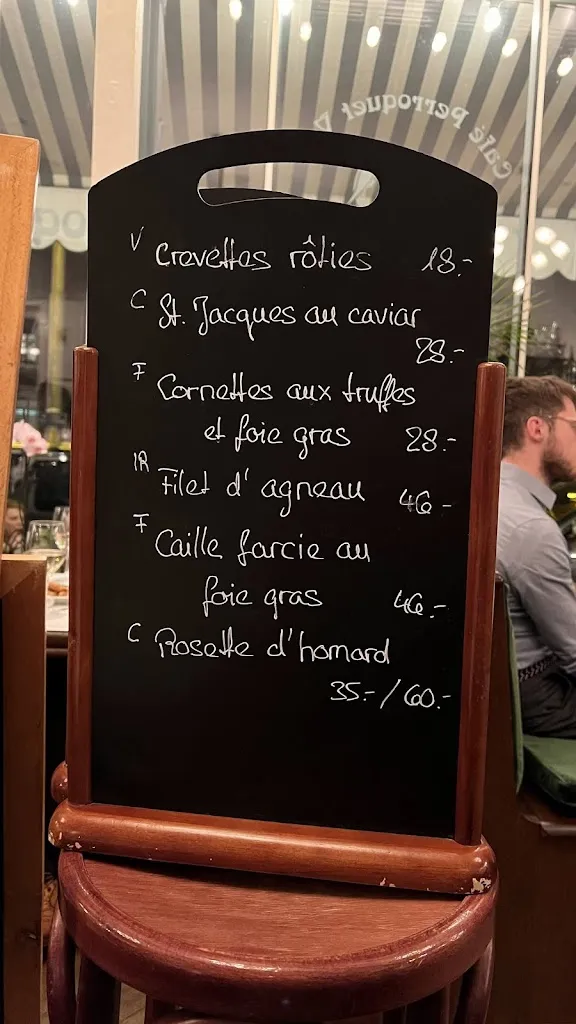 Café Perroquet
V Crevettes rôties 18.-
C St. Jacques au caviar
28.-
F Cornettes aux truffes
et foie gras 28.-
IR Filet d'agneau 46-
F Caille farcie au
foie gras 46.-
C Rosette d'homard
35.-/60.-